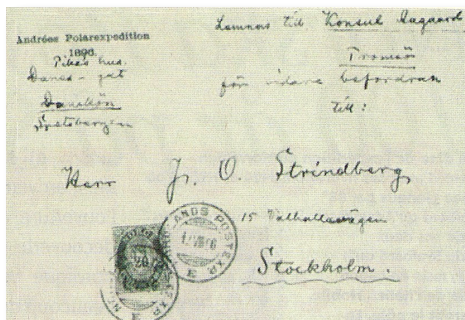 Andrées Polarexpedition
1896.
Pikes hus.
Danes-gat
Danskön
Spetsbergen
Lemnas till Konsul Aagaard
Tromsö
för vidare befordran
till:
Herr J. O. Strindberg
15 Valhallavägen
Stockholm.
LANDS POSTEXP
E
20